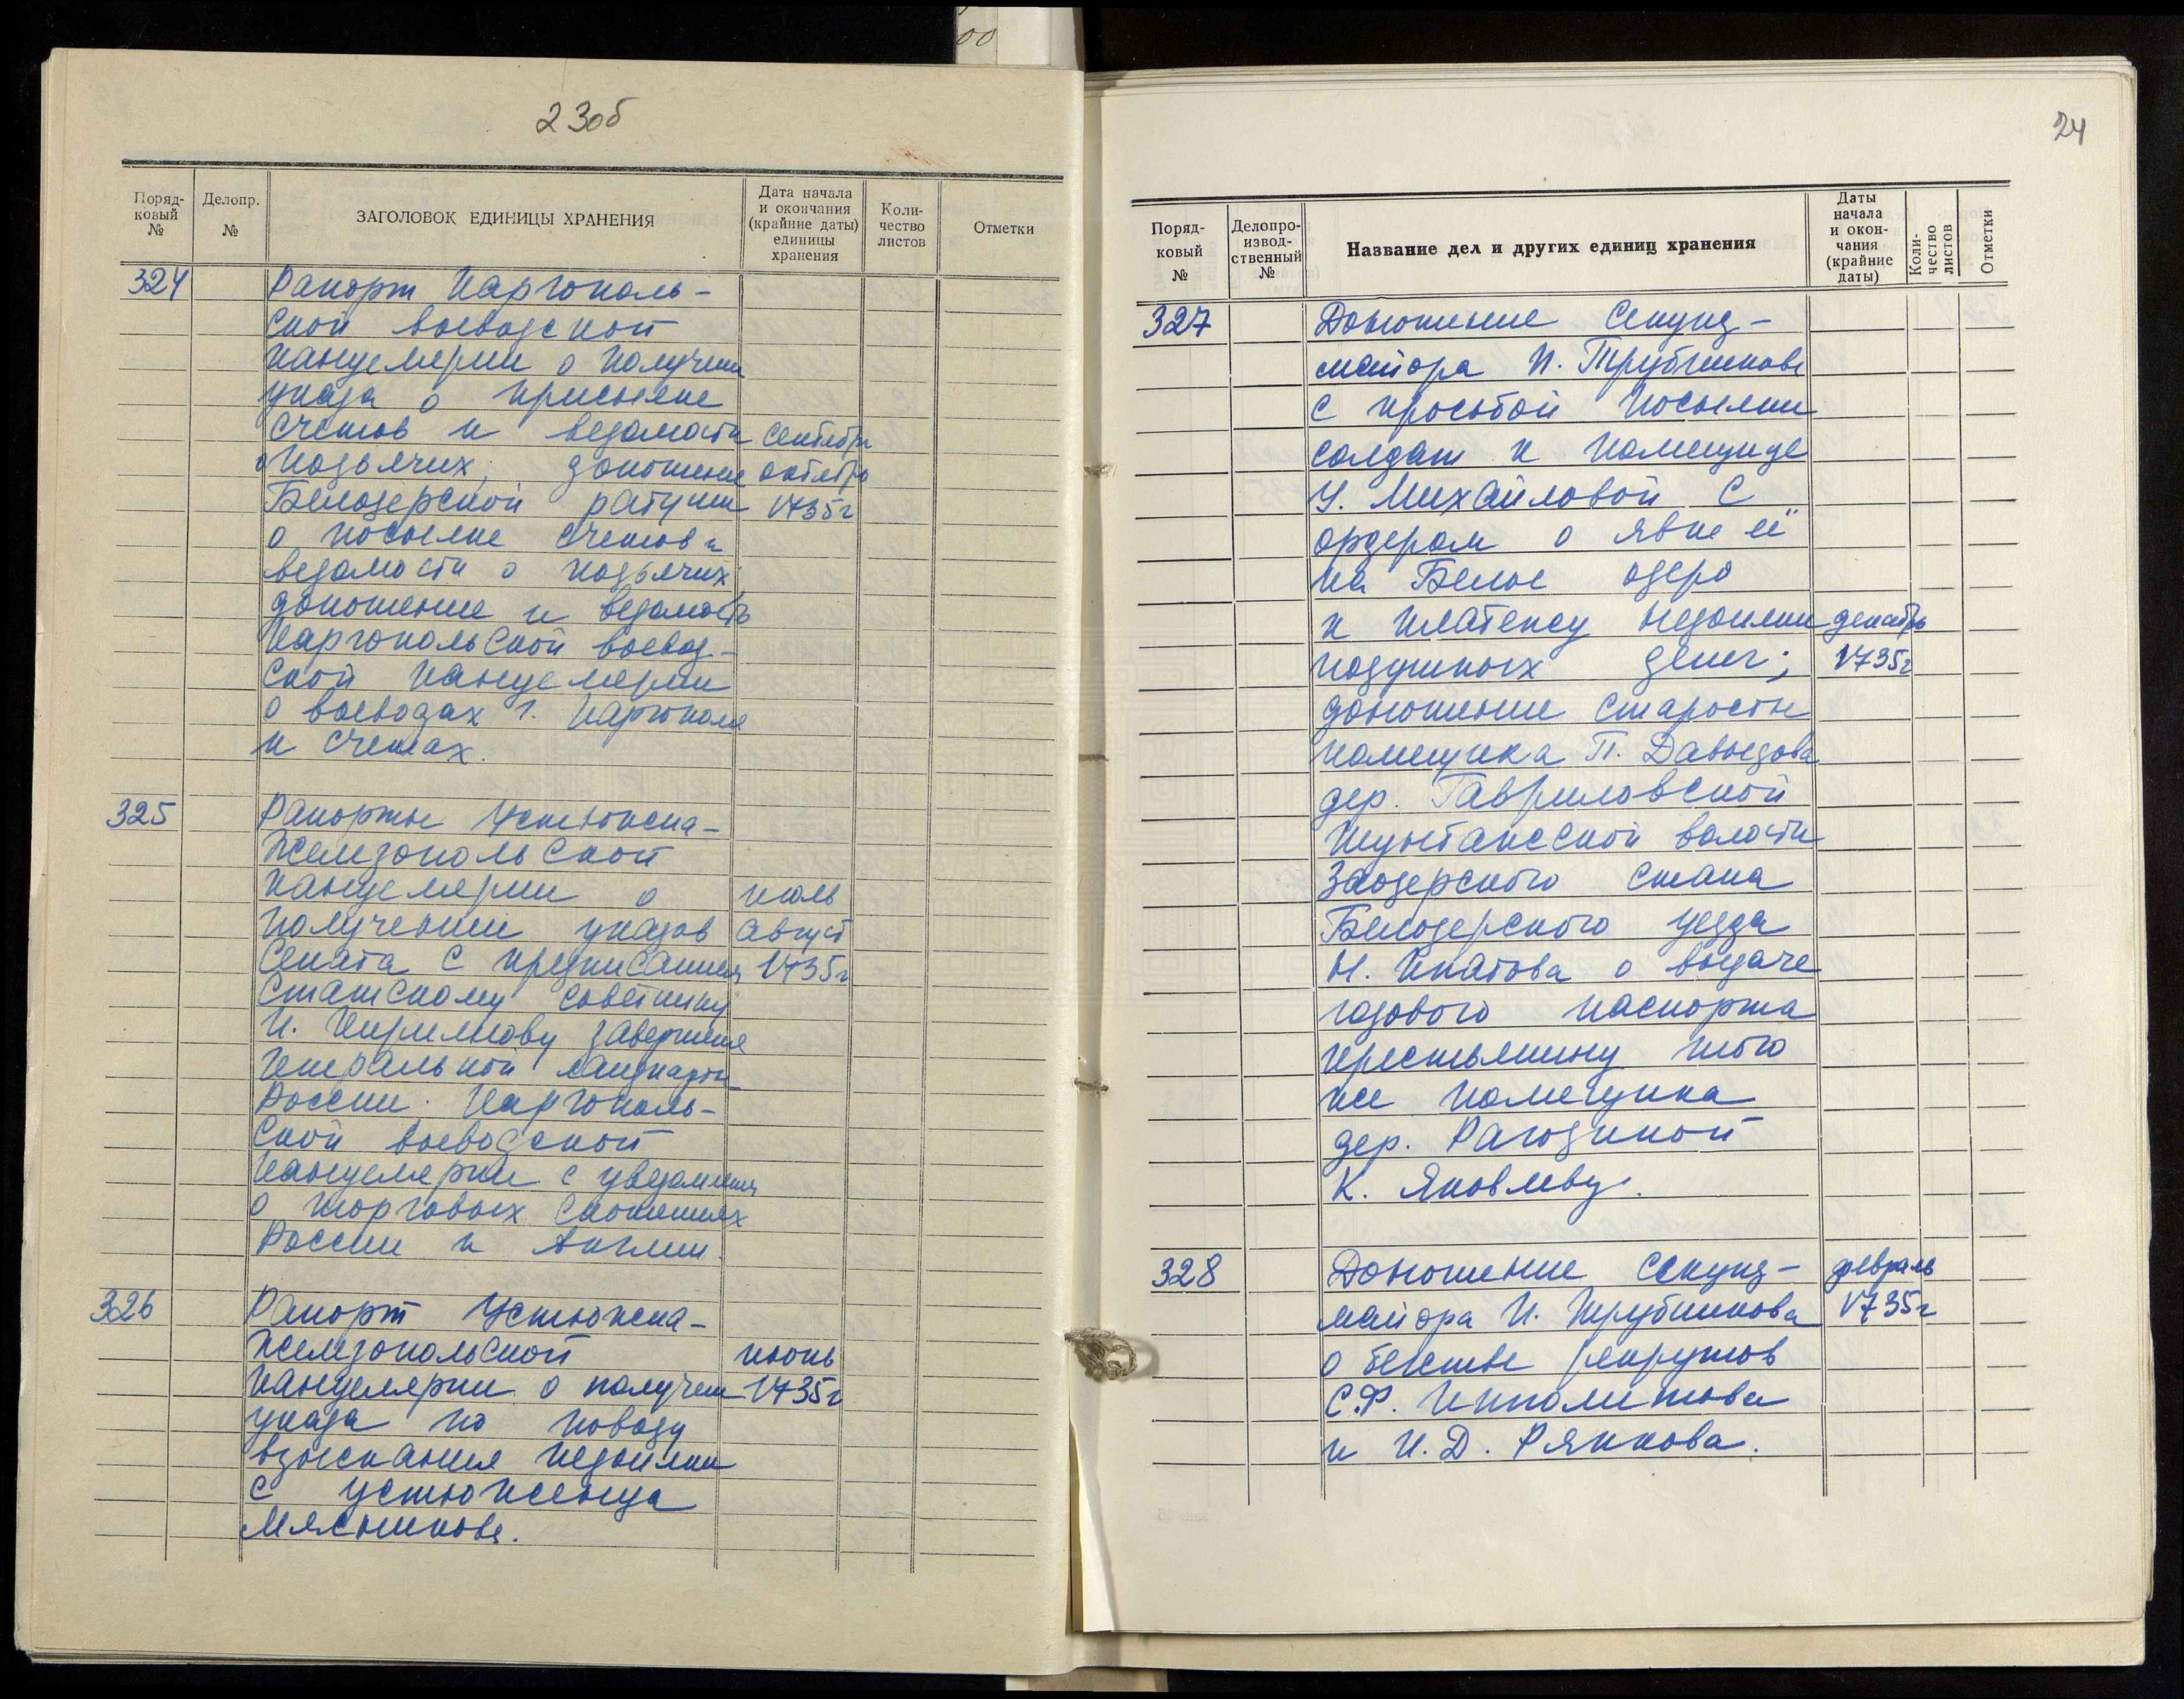 23об
Поряд-
ковый
№
Делопр.
№
ЗАГОЛОВОК ЕДИНИЦЫ ХРАНЕНИЯ
Дата начала
и окончания
(крайние даты)
единицы
хранения
Коли-
чество
листов
Отметки
324
Рапорт Каргополь-
ской воеводской
канцелярии о получен
указа о присылке
счетов и ведомости сентябрь
о подьячих; доношение октябрь
Белозерской ратуши 1735г
о посылке счетов и
ведомости о подьячих;
доношение и ведомость
Каргопольской воевод-
ской канцелярии
о воеводах г. Каргополя
и счетах.
325
Рапорты Устюжена-
Железопольской
канцелярии о июль
получении указов август
Сената с предписанием 1735г
статскому советнику
И. Кирилову завершение
Генеральной ландкарты
России. Каргополь-
ской воеводской
канцелярии с уведомлением
о торговых сношениях
России и Англии.
326
Рапорт Устюжена-
Железопольской июнь
канцелярии о получен 1735г
указа по поводу
взыскания недоимки
с устюженца
Мясникова.
24
Поряд-
ковый
№
Делопро-
извод-
ственный
№
Название дел и других единиц хранения
Даты
начала
и окон-
чания
(крайние
даты)
Коли-
чество
листов
Отметки
327
Доношение Секунд-
майора И. Трубникова
с просьбой посылки
солдат к помещице
У. Михайловой с
ордером о явке её
на Белое озеро
к платежу недоимки декабрь
подушных денег; 1735г
доношение старосты
помещика П. Давыдова
дер. Гавриловской
волости
Заозерского стана
Белозерского уезда
Н. Ипатова о выдаче
годового паспорта
крестьянину того
же помещика
дер. Рагозиной
К. Яковлеву.
328
Доношение секунд- февраль
майора И. Трубникова 1735г
о бегстве рекрутов
С.Ф. Ипполитова
и И.Д. Ряпкова.